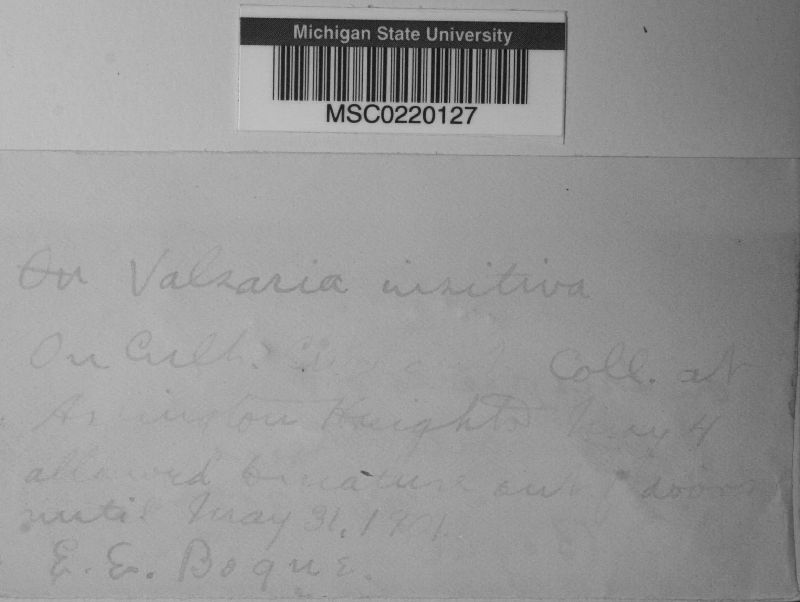 Michigan State University
MSC0220127
On Valsaria insitiva
On Cult. Coll. at
Arlington Heights May 4
allowed to mature out of doors
until May 31, 1901.
E. E. Bogue.